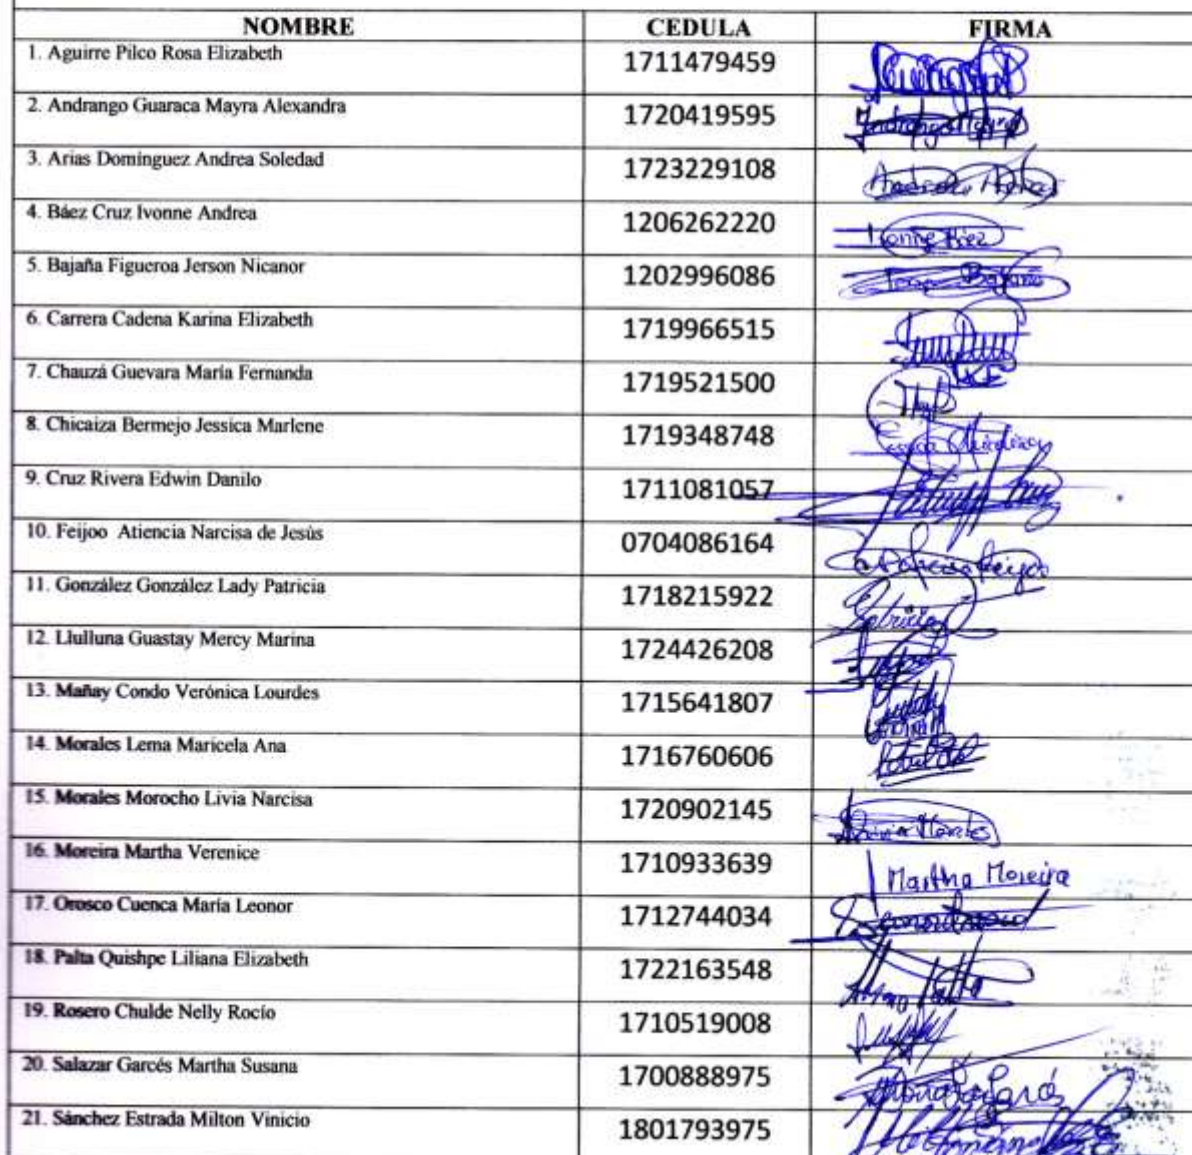 NOMBRE CEDULA FIRMA
1. Aguirre Pilco Rosa Elizabeth 1711479459
2. Andrango Guaraca Mayra Alexandra 1720419595
3. Arias Domínguez Andrea Soledad 1723229108
4. Báez Cruz Ivonne Andrea 1206262220 Ivonne Báez
5. Bajaña Figueroa Jerson Nicanor 1202996086
6. Carrera Cadena Karina Elizabeth 1719966515
7. Chauzá Guevara María Fernanda 1719521500
8. Chicaiza Bermejo Jessica Marlene 1719348748
9. Cruz Rivera Edwin Danilo 1711081057
10. Feijoo Atiencia Narcisa de Jesús 0704086164
11. González González Lady Patricia 1718215922
12. Llulluna Guastay Mercy Marina 1724426208
13. Mañay Condo Verónica Lourdes 1715641807
14. Morales Lema Maricela Ana 1716760606
15. Morales Morocho Livia Narcisa 1720902145
16. Moreira Martha Verenice 1710933639 Martha Moreira
17. Orosco Cuenca María Leonor 1712744034
18. Palta Quishpe Liliana Elizabeth 1722163548
19. Rosero Chulde Nelly Rocío 1710519008
20. Salazar Garcés Martha Susana 1700888975
21. Sánchez Estrada Milton Vinicio 1801793975